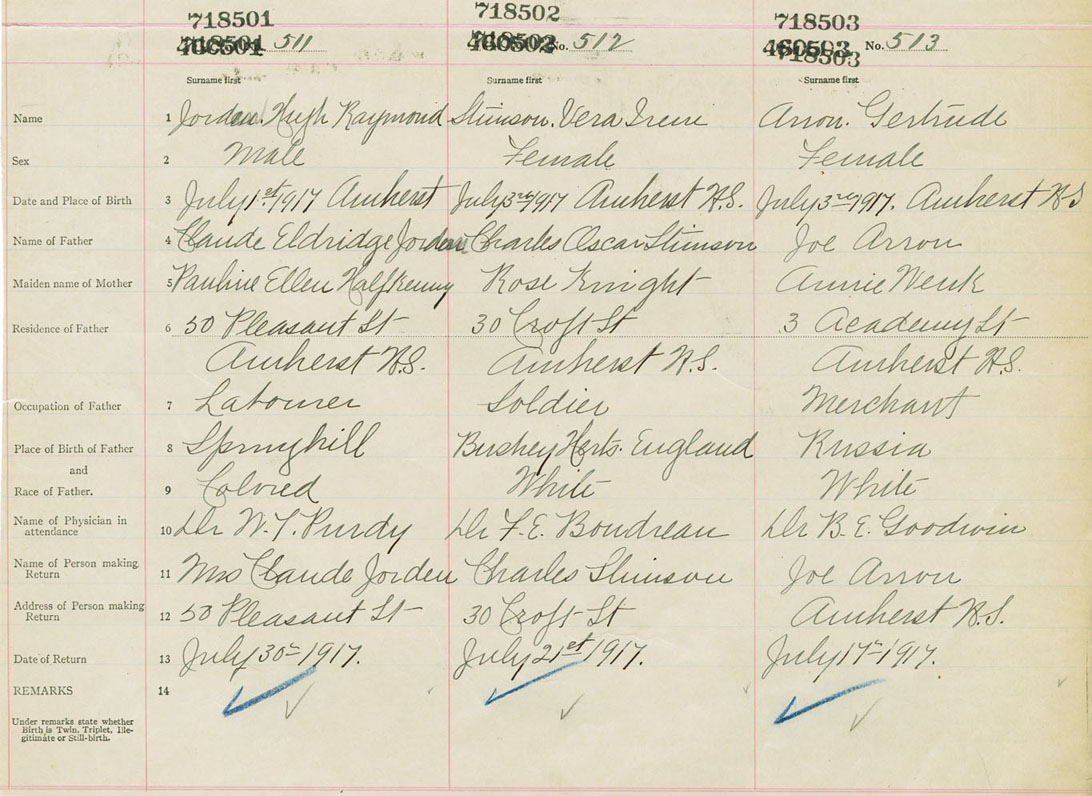 718501 718502 718503
460501 511 460502 No. 512 460503 No. 513
718503
Surname first Surname first Surname first
Name 1 Jorden. Hugh Raymond Stimson. Vera Irene Arron. Gertrude
Sex 2 Male Female Female
Date and Place of Birth 3 July 1st 1917 Amherst July 3rd 1917 Amherst N.S. July 3rd 1917. Amherst N.S
Name of Father 4 Claude Eldridge Jorden Charles Oscar Stimson Joe Arron
Maiden name of Mother 5 Pauline Ellen Halfkenny Rose Knight Annie Wenk
Residence of Father 6 50 Pleasant St 30 Croft St 3 Academy St
Amherst N.S. Amherst N.S. Amherst N.S.
Occupation of Father 7 Labourer Soldier Merchant
Place of Birth of Father 8 Springhill Bushey Herts. England Russia
and
Race of Father. 9 Colored White White
Name of Physician in attendance 10 Dr W. T. Purdy Dr F. E. Boudreau Dr B. E. Goodwin
Name of Person making Return 11 Mrs Claude Jorden Charles Stimson Joe Arron
Address of Person making Return 12 50 Pleasant St 30 Croft St Amherst N.S.
Date of Return 13 July 30th 1917. July 21st 1917. July 17th 1917.
REMARKS 14
Under remarks state whether
Birth is Twin, Triplet, Ille-
gitimate or Still-birth.